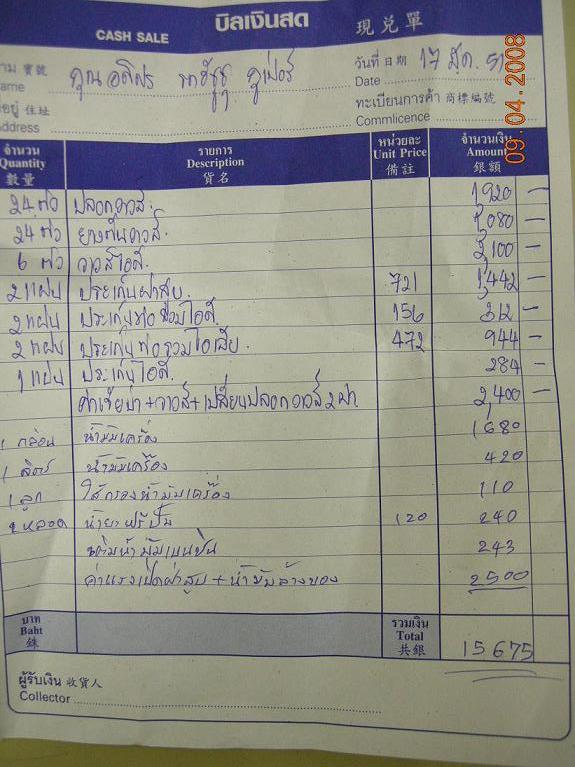 บิลเงินสด
CASH SALE 現兌單
นาม 寶號 คุณ อดิศร วันที่ 日期 17 มี.ค. 51
Name Date
ที่อยู่ 住址 ทะเบียนการค้า 商標編號
Address Commlicence
จำนวน รายการ หน่วยละ จำนวนเงิน
Quantity Description Unit Price Amount
數量 貨名 備註 銀額
24 ตัว ปลอกวาวส์. 1,920 –
24 ตัว ยางตีนวาวส์. 1,080 –
6 ตัว วาวส์ไอดี. 2,100 –
2 แผ่น ประเก็นฝาสูบ 721 1,442 –
2 แผ่น ประเก็นท่อร่วมไอดี. 156 312 –
2 แผ่น ประเก็นท่อรวมไอเสีย. 472 944 –
1 แผ่น ประเก็นไอดี. 284 –
ค่าเจียบ่า+วาวส์+เปลี่ยนปลอกวาวส์ 2 ฝา. 2,400 –
1 กล่อน น้ำมันเครื่อง 1680
1 ลิตร น้ำมันเครื่อง 420
1 ลูก ใส้กรองน้ำมันเครื่อง 110
2 หลอด น้ำยาฟรีปั๊ม 120 240
เติมน้ำมันเบนซิน 243
ค่าแรงเปิดฝาสูบ + น้ำมันล้างของ 2500
บาท รวมเงิน
Baht Total 15675
銖 共銀
ผู้รับเงิน 收貨人
Collector
09.04.2008